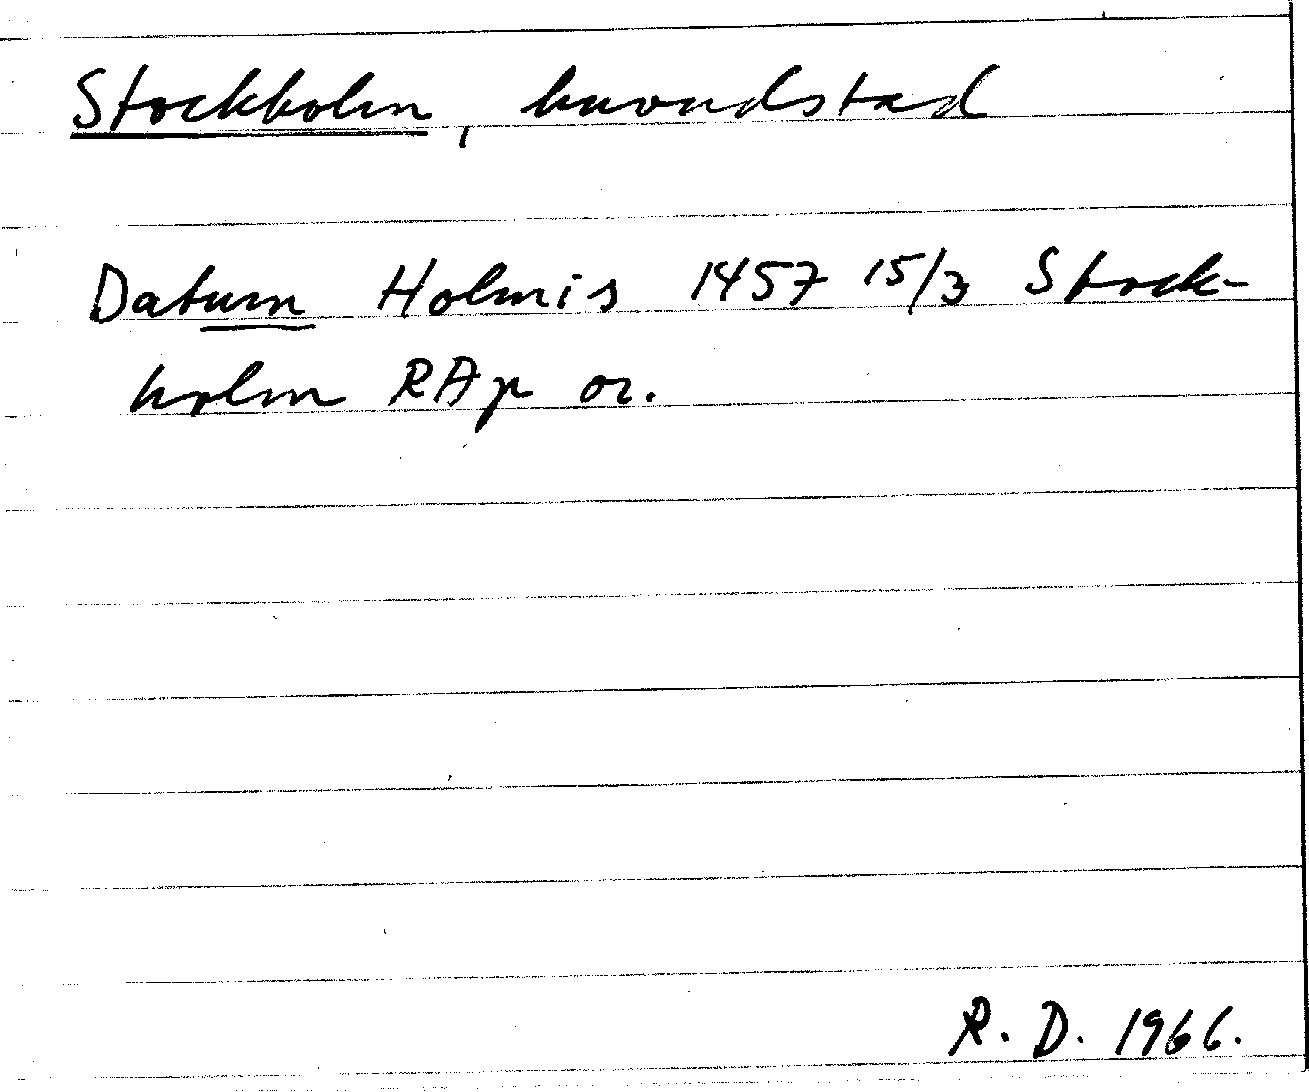 Stockholm, huvudstad
Datum Holmis 1457 15/3 Stock-
holm RAp or.
R. D. 1966.